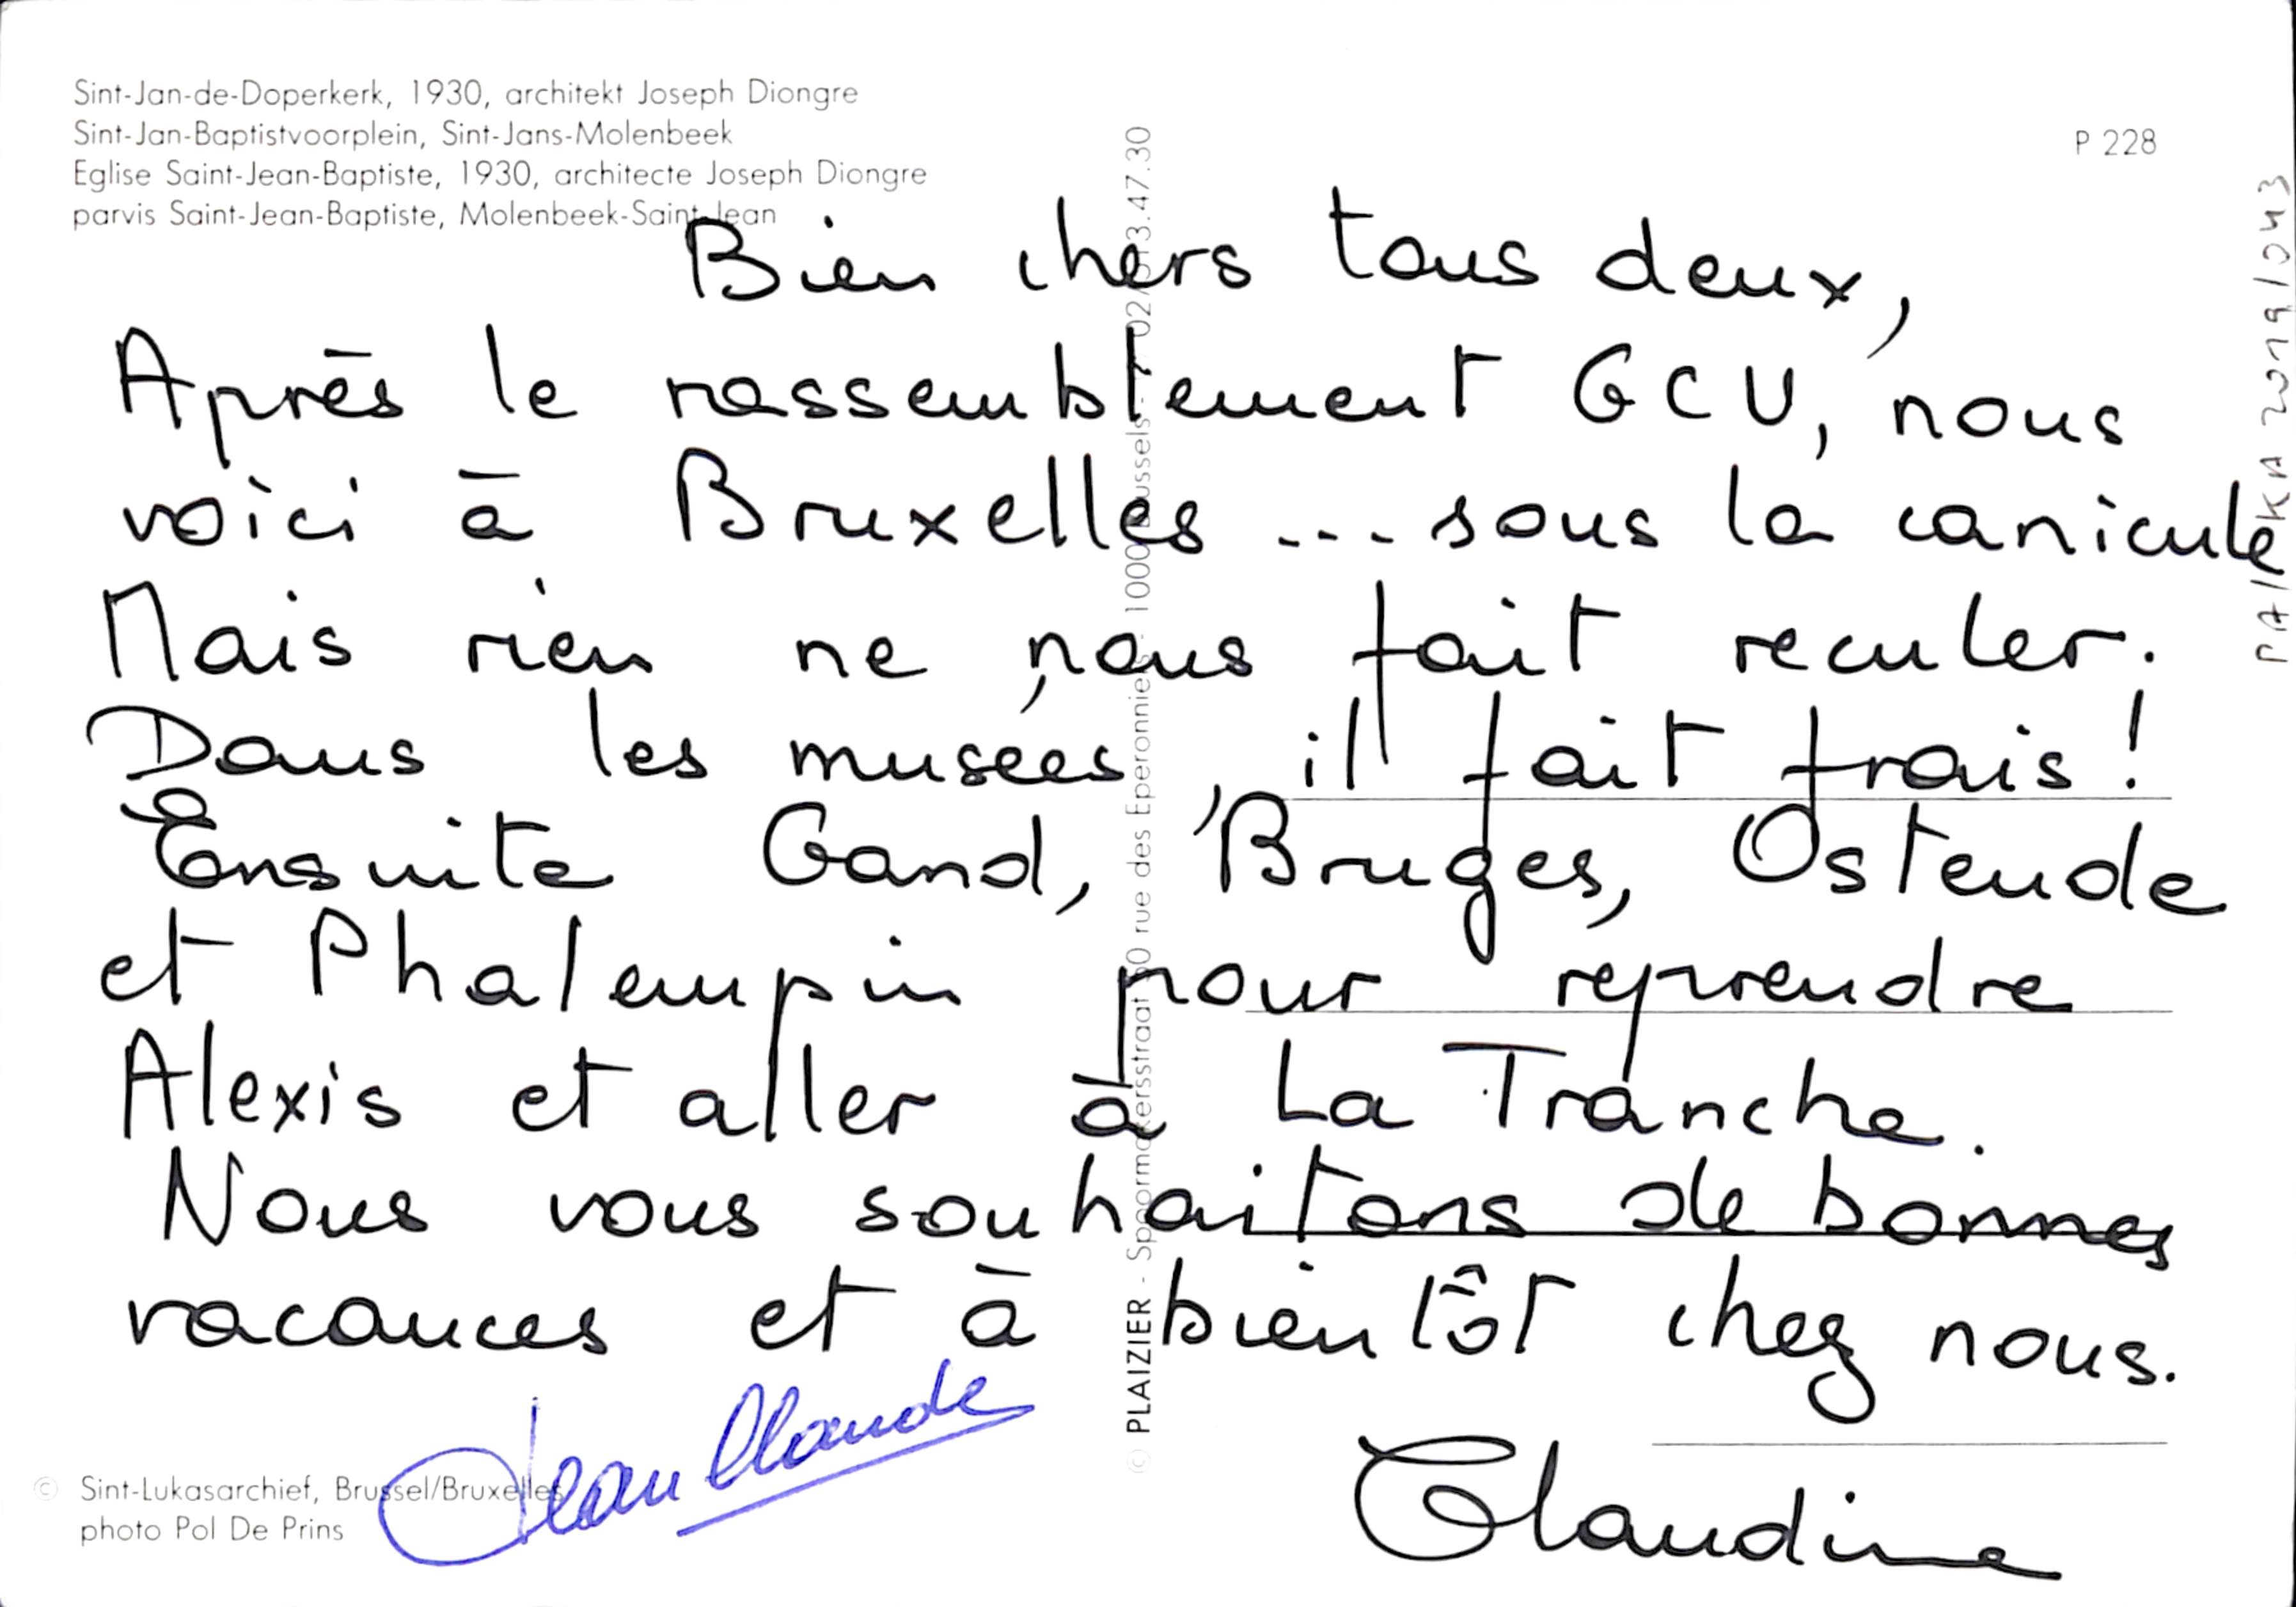 Sint-Jan-de-Doperkerk, 1930, architekt Joseph Diongre
Sint-Jan-Baptistvoorplein, Sint-Jans-Molenbeek
Eglise Saint-Jean-Baptiste, 1930, architecte Joseph Diongre
parvis Saint-Jean-Baptiste, Molenbeek-Saint-Jean
P 228
Bien chers tous deux,
Après le rassemblement GCU, nous
voici à Bruxelles ... sous la canicule
Mais rien ne nous fait reculer.
Dans les musées, il fait frais!
Ensuite Gand, Bruges, Ostende
et Phalempin pour reprendre
Alexis et aller à La Tranche.
Nous vous souhaitons de bonnes
vacances et à bientôt chez nous.
Jean Claude
Claudine
© Sint-Lukasarchief, Brussel/Bruxelles
photo Pol De Prins
© PLAIZIER - Spoormakersstraat 50 rue des Eperonniers - 1000 Brussels - T 02/513.47.30
PA/KKA 2019/043